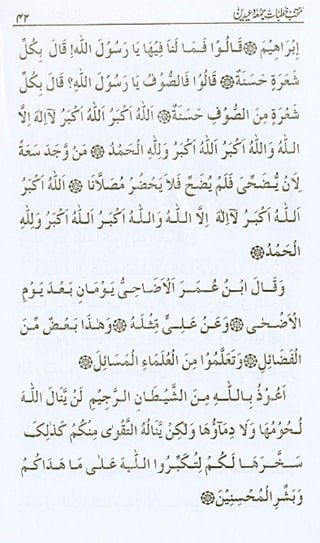 منتخب خطبات جمعہ و عیدین ۴۲
اِبْرَاهِیْمَ ۞ قَالُوْا فَمَا لَنَا فِیْهَا یَا رَسُوْلَ اللهِ! قَالَ بِكُلِّ
شَعْرَةٍ حَسَنَةٌ ۞ قَالُوْا فَالصُّوْفُ یَا رَسُوْلَ اللهِ؟ قَالَ بِكُلِّ
شَعْرَةٍ مِنَ الصُّوْفِ حَسَنَةٌ ۞ اَللهُ اَكْبَرُ اَللهُ اَكْبَرُ لَآ اِلٰهَ اِلَّا
اللهُ وَاللهُ اَكْبَرُ اَللهُ اَكْبَرُ وَلِلّٰهِ الْحَمْدُ ۞ مَنْ وَّجَدَ سَعَةً
لِاَنْ یُّضَحِّیَ فَلَمْ یُضَحِّ فَلَا یَحْضُرْ مُصَلَّانَا ۞ اَللهُ اَكْبَرُ
اَللهُ اَكْبَرُ لَآ اِلٰهَ اِلَّا اللهُ وَاللهُ اَكْبَرُ اَللهُ اَكْبَرُ وَلِلّٰهِ
الْحَمْدُ ۞
وَقَالَ ابْنُ عُمَرَ اَلْاَضَاحِیُّ یَوْمَانِ بَعْدَ یَوْمِ
الْاَضْحٰی ۞ وَعَنْ عَلِیٍّ مِّثْلُهٗ ۞ وَهٰذَا بَعْضٌ مِّنَ
الْفَضَائِلِ ۞ وَتَعَلَّمُوْا مِنَ الْعُلَمَاءِ الْمَسَائِلَ ۞
اَعُوْذُ بِاللهِ مِنَ الشَّیْطَانِ الرَّجِیْمِ لَنْ یَّنَالَ اللهَ
لُحُوْمُهَا وَلَا دِمَآؤُهَا وَلٰكِنْ یَّنَالُهُ التَّقْوٰی مِنْكُمْ كَذٰلِكَ
سَخَّرَهَا لَكُمْ لِتُكَبِّرُوا اللهَ عَلٰی مَا هَدَاكُمْ
وَبَشِّرِ الْمُحْسِنِیْنَ ۞